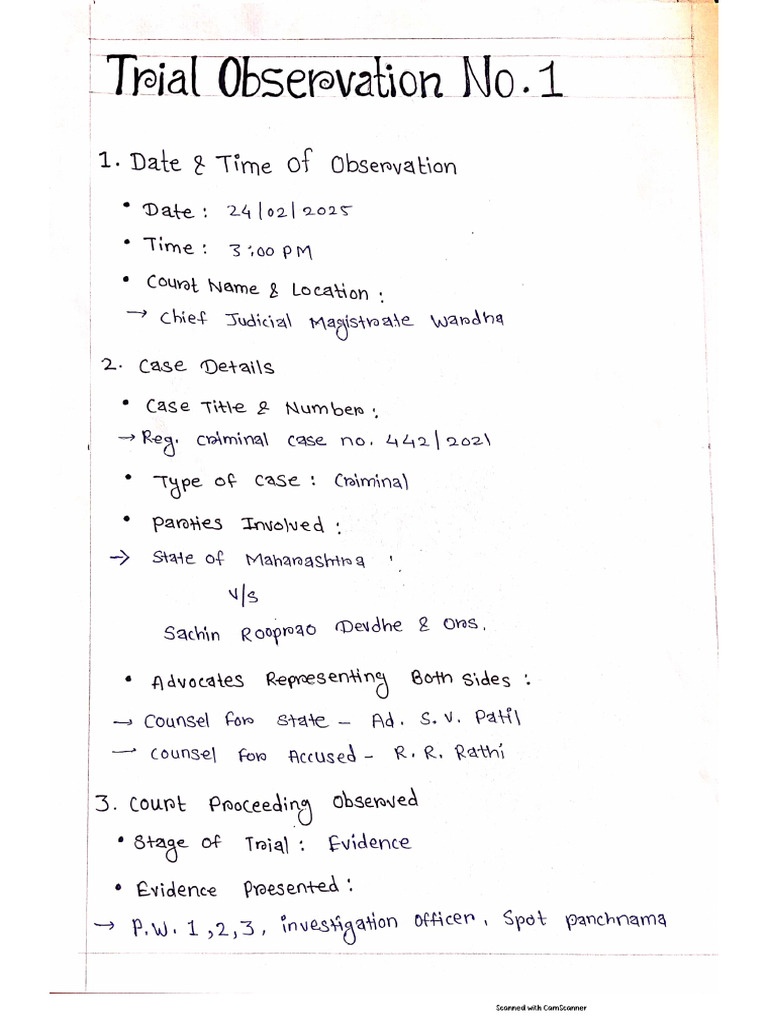 Trial Observation No. 1
1. Date & Time Of Observation
• Date : 24/02/2025
• Time : 3:00 PM
• Court Name & Location :
→ Chief Judicial Magistrate Wardha
2. Case Details
• Case Title & Number :
→ Reg. criminal case no. 442/2021
• Type of case : Criminal
• Parties Involved :
→ State of Maharashtra
v/s
Sachin Rooprao Devdhe & Ors.
• Advocates Representing Both Sides :
→ Counsel for State – Ad. S. V. Patil
→ Counsel for Accused – R. R. Rathi
3. Court Proceeding Observed
• Stage of Trial : Evidence
• Evidence Presented :
→ P.W. 1, 2, 3, investigation officer, Spot panchnama
Scanned with CamScanner